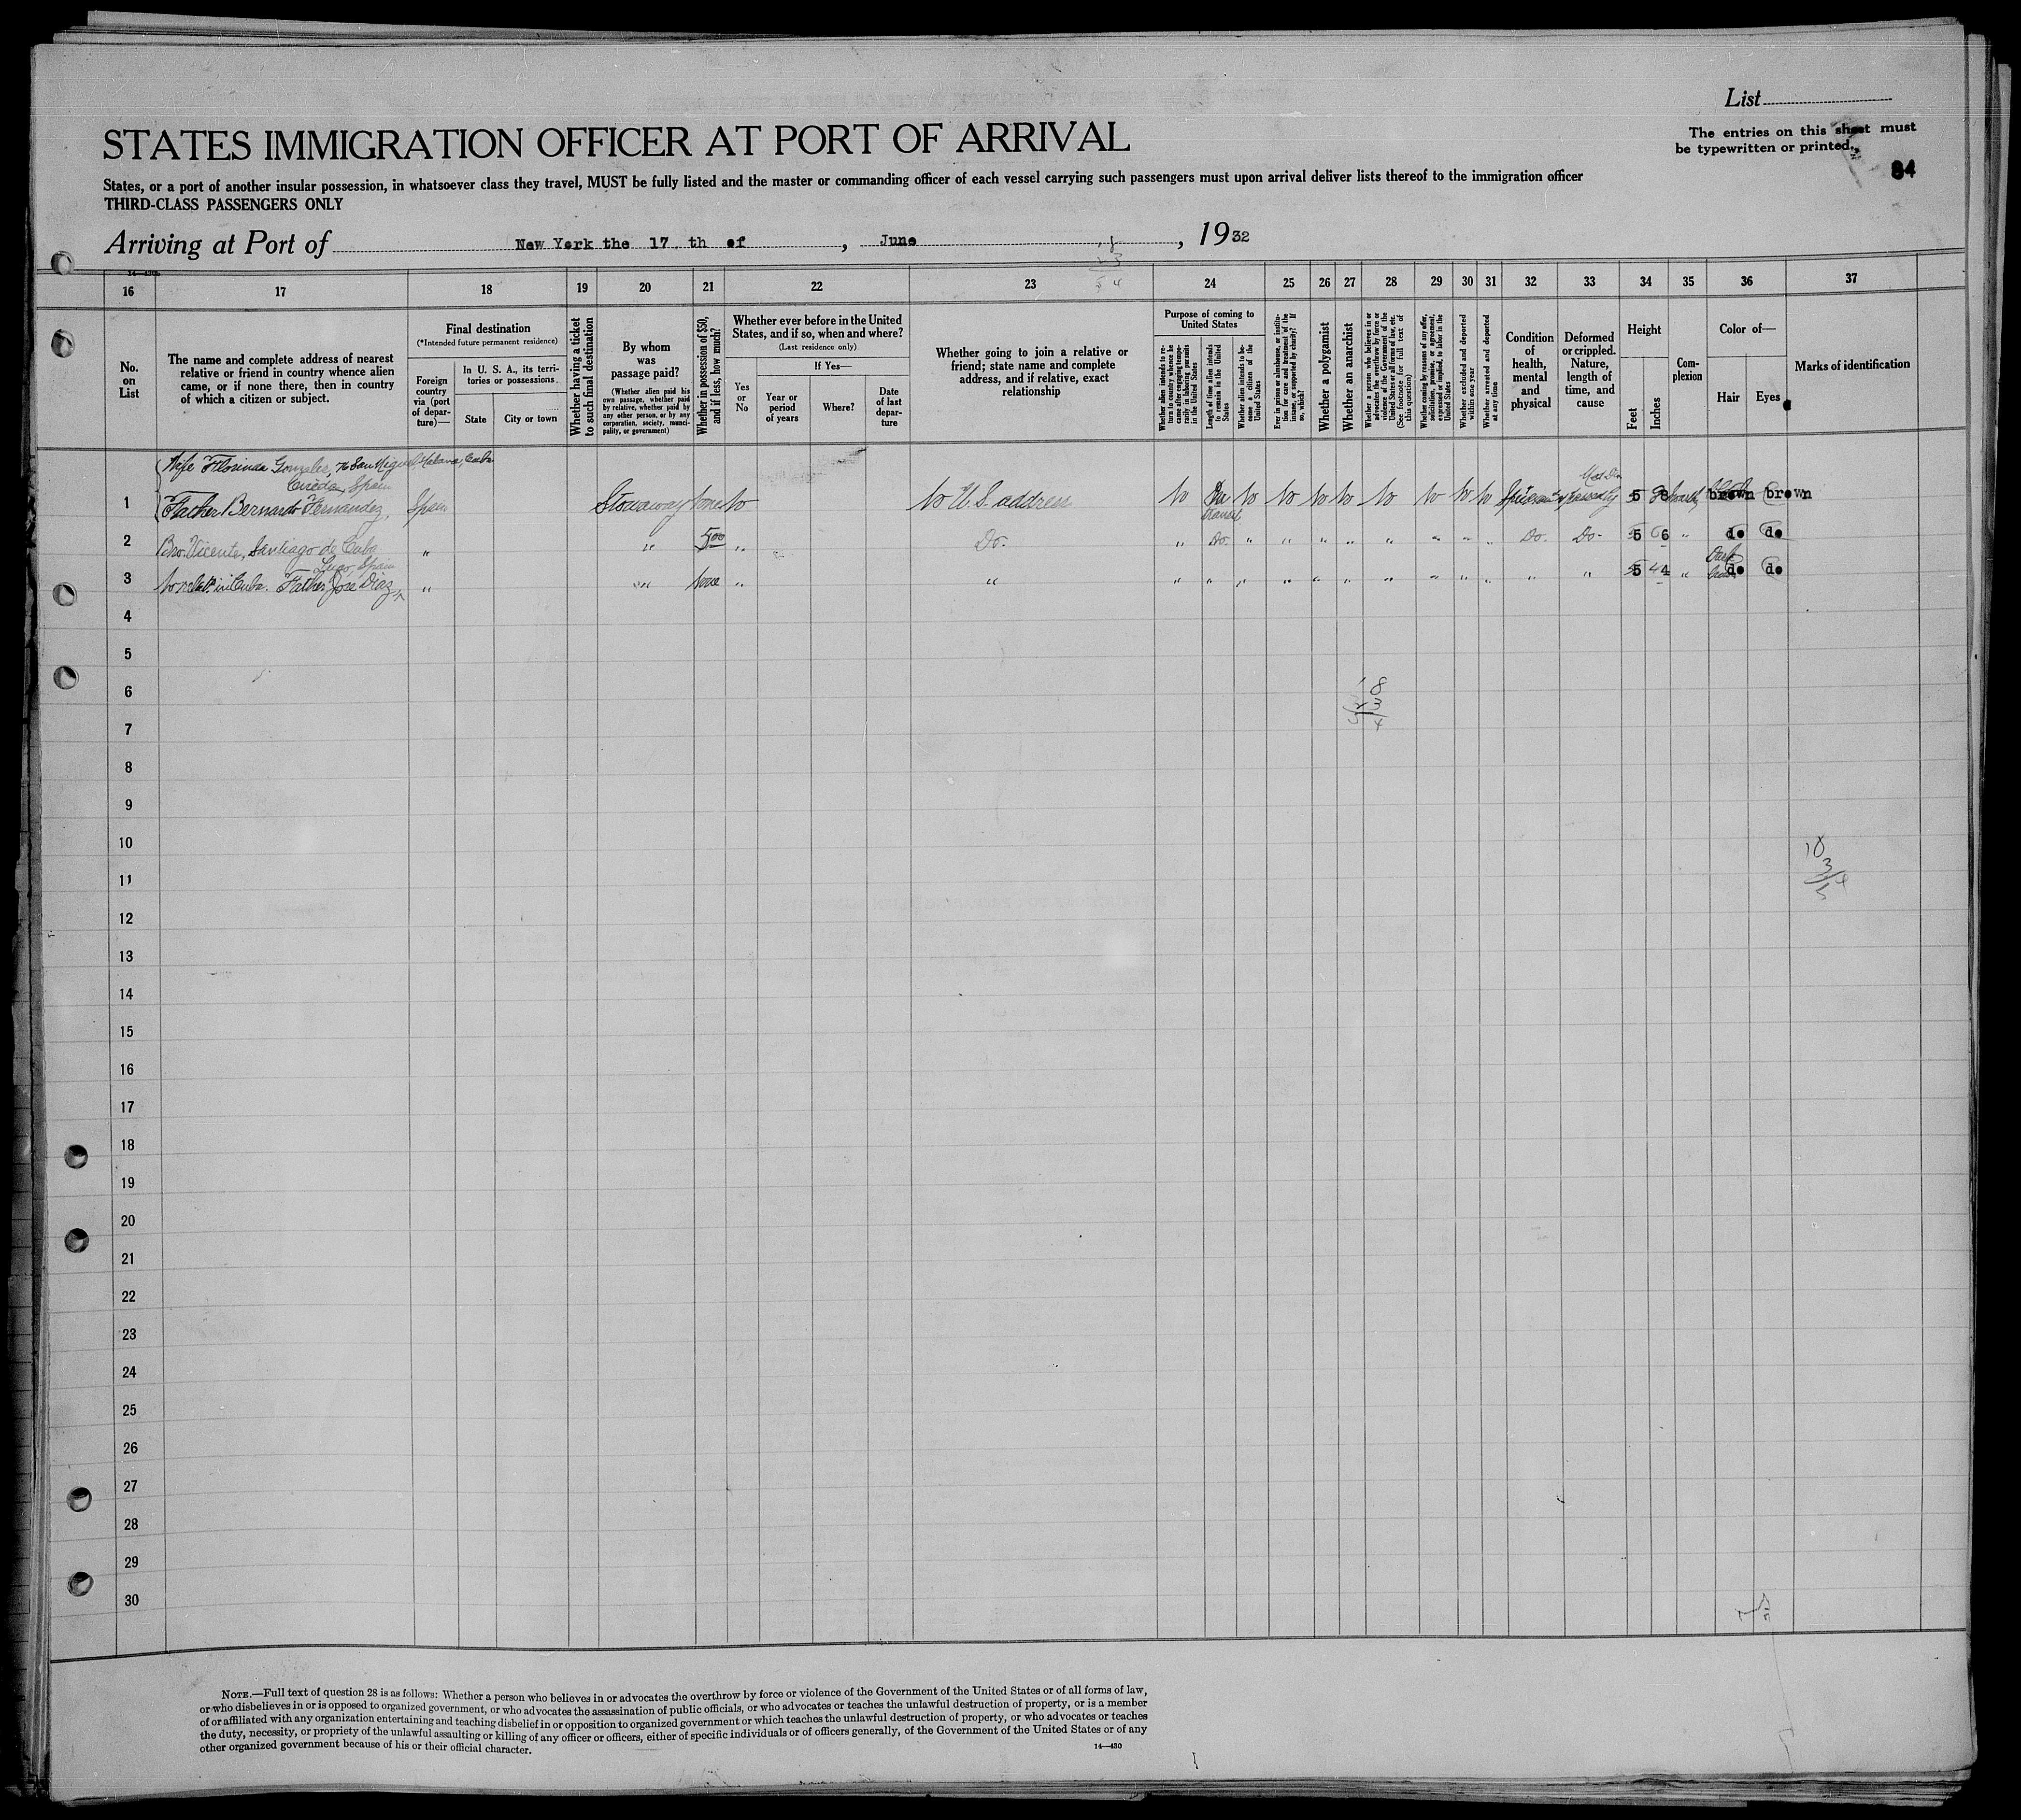 List
The entries on this sheet must
be typewritten or printed.
84
STATES IMMIGRATION OFFICER AT PORT OF ARRIVAL
States, or a port of another insular possession, in whatsoever class they travel, MUST be fully listed and the master or commanding officer of each vessel carrying such passengers must upon arrival deliver lists thereof to the immigration officer
THIRD-CLASS PASSENGERS ONLY
Arriving at Port of New York the 17 th of, June, 1932
14—430
16 17 18 19 20 21 22 23 24 25 26 27 28 29 30 31 32 33 34 35 36 37
No.
on
List
The name and complete address of nearest
relative or friend in country whence alien
came, or if none there, then in country
of which a citizen or subject.
Final destination
(*Intended future permanent residence)
Foreign
country
via (port
of depar-
ture)—
In U. S. A., its terri-
tories or possessions.
State
City or town
Whether having a ticket
to such final destination
By whom
was
passage paid?
(Whether alien paid his
own passage, whether paid
by relative, whether paid by
any other person, or by any
corporation, society, munici-
pality, or government)
Whether in possession of $50,
and if less, how much?
Whether ever before in the United
States, and if so, when and where?
(Last residence only)
Yes
or
No
If Yes—
Year or
period
of years
Where?
Date
of last
depar-
ture
Whether going to join a relative or
friend; state name and complete
address, and if relative, exact
relationship
Purpose of coming to
United States
Whether alien intends to re-
turn to country whence he
came after engaging tempo-
rarily in laboring pursuits
in the United States
Length of time alien intends
to remain in the United
States
Whether alien intends to be-
come a citizen of the
United States
Ever in prison or almshouse, or institu-
tion for care and treatment of the
insane, or supported by charity? If
so, which?
Whether a polygamist
Whether an anarchist
Whether a person who believes in or
advocates the overthrow by force or
violence of the Government of the
United States or all forms of law, etc.
(See footnote for full text of
this question)
Whether coming by reasons of any offer,
solicitation, promise, or agreement,
expressed or implied, to labor in the
United States
Whether excluded and deported
within one year
Whether arrested and deported
at any time
Condition
of
health,
mental
and
physical
Deformed
or crippled.
Nature,
length of
time, and
cause
Height
Feet
Inches
Com-
plexion
Color of—
Hair
Eyes
Marks of identification
Wife Florinda Gonzalez, 76 San Miguel, Habana, Cuba
Oviedo, Spain
1 Father Bernardo Fernandez, Spain Stowaway none No No U.S. address No In No No No No No No No No 5 brown brown
transit
2 Bro. Vicente, Santiago de Cuba " " 5.00 " Do. " Do. " " " " " " " " Do. Do. 5 6 " do do
Lugo, Spain Dark
3 No relat. in Cuba. Father Jose Diaz, " " none " " " " " " " " " " " " " " 5 4 " do do
4
5
6
7
8
9
10
11
12
13
14
15
16
17
18
19
20
21
22
23
24
25
26
27
28
29
30
NOTE.—Full text of question 28 is as follows: Whether a person who believes in or advocates the overthrow by force or violence of the Government of the United States or of all forms of law,
or who disbelieves in or is opposed to organized government, or who advocates the assassination of public officials, or who advocates or teaches the unlawful destruction of property, or is a member
of or affiliated with any organization entertaining and teaching disbelief in or opposition to organized government or which teaches the unlawful destruction of property, or who advocates or teaches
the duty, necessity, or propriety of the unlawful assaulting or killing of any officer or officers, either of specific individuals or of officers generally, of the Government of the United States or of any
other organized government because of his or their official character.
14—430